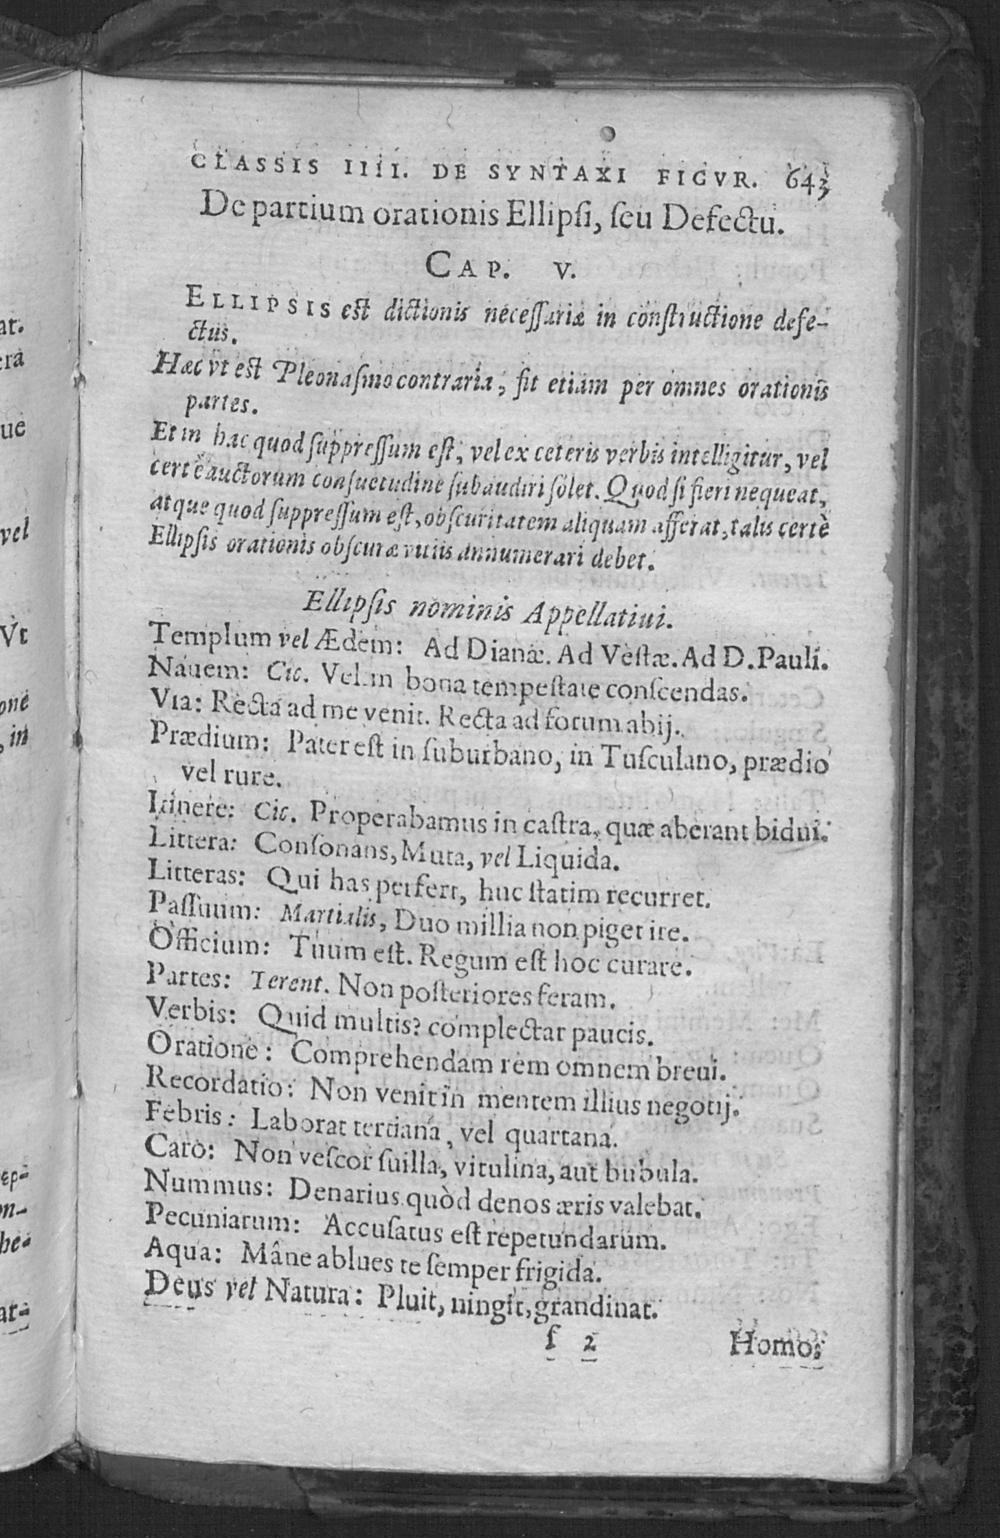 CLASSIS IIII. DE SYNTAXI FIGVR. 643
De partium orationis Ellipſi, ſeu Defectu.
CAP. V.
ELLIPSIS est dictionis neceſſariæ in conſtructione defe-
ctus.
Hæc vt est Pleonaſmo contraria, fit etiam per omnes orationis
partes.
Et in hac quod ſuppreſſum eſt, vel ex ceteris verbis intelligitur, vel
certè auctorum conſuetudine ſubaudiri ſolet. Quod ſi fieri nequeat,
atque quod ſuppreſſum eſt, obſcuritatem aliquam afferat, talis certè
Ellipſis orationis obſcuræ vitiis annumerari debet.
Ellipſis nominis Appellatiui.
Templum vel Ædem: Ad Dianæ. Ad Veſtæ. Ad D. Pauli.
Nauem: Cic. Velim bona tempeſtate conſcendas.
Via: Recta ad me venit. Recta ad forum abij.
Prædium: Pater eſt in ſuburbano, in Tuſculano, prædio
vel rure.
Itinere: Cic. Properabamus in caſtra, quæ aberant bidui.
Littera: Conſonans, Muta, vel Liquida.
Litteras: Qui has perfert, huc ſtatim recurret.
Paſſuum: Martialis, Duo millia non piget ire.
Officium: Tuum eſt. Regum eſt hoc curare.
Partes: Terent. Non poſteriores feram.
Verbis: Quid multis? complectar paucis.
Oratione: Comprehendam rem omnem breui.
Recordatio: Non venit in mentem illius negotij.
Febris: Laborat tertiana, vel quartana.
Caro: Non veſcor ſuilla, vitulina, aut bubula.
Nummus: Denarius quòd denos æris valebat.
Pecuniarum: Accuſatus eſt repetundarum.
Aqua: Mâne ablues te ſemper frigida.
Deus vel Natura: Pluit, ningit, grandinat.
ſ 2 Homo: